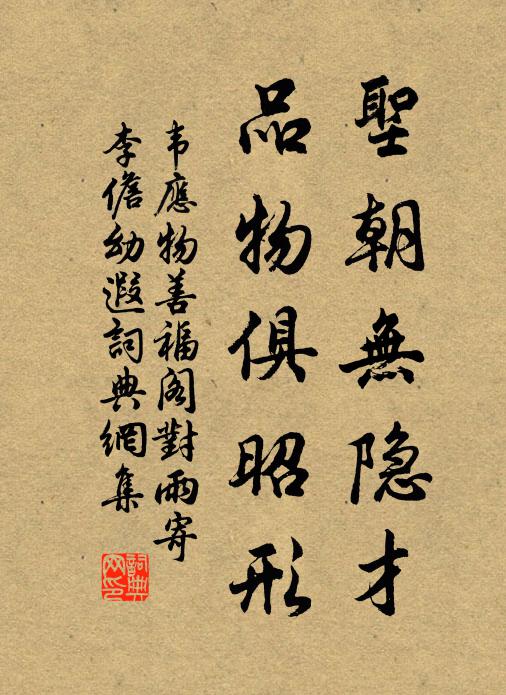 聖朝無隐才
品物俱昭形
韦應物善福阁對雨寄
李儋幼遐詞典網集
詞典
网印